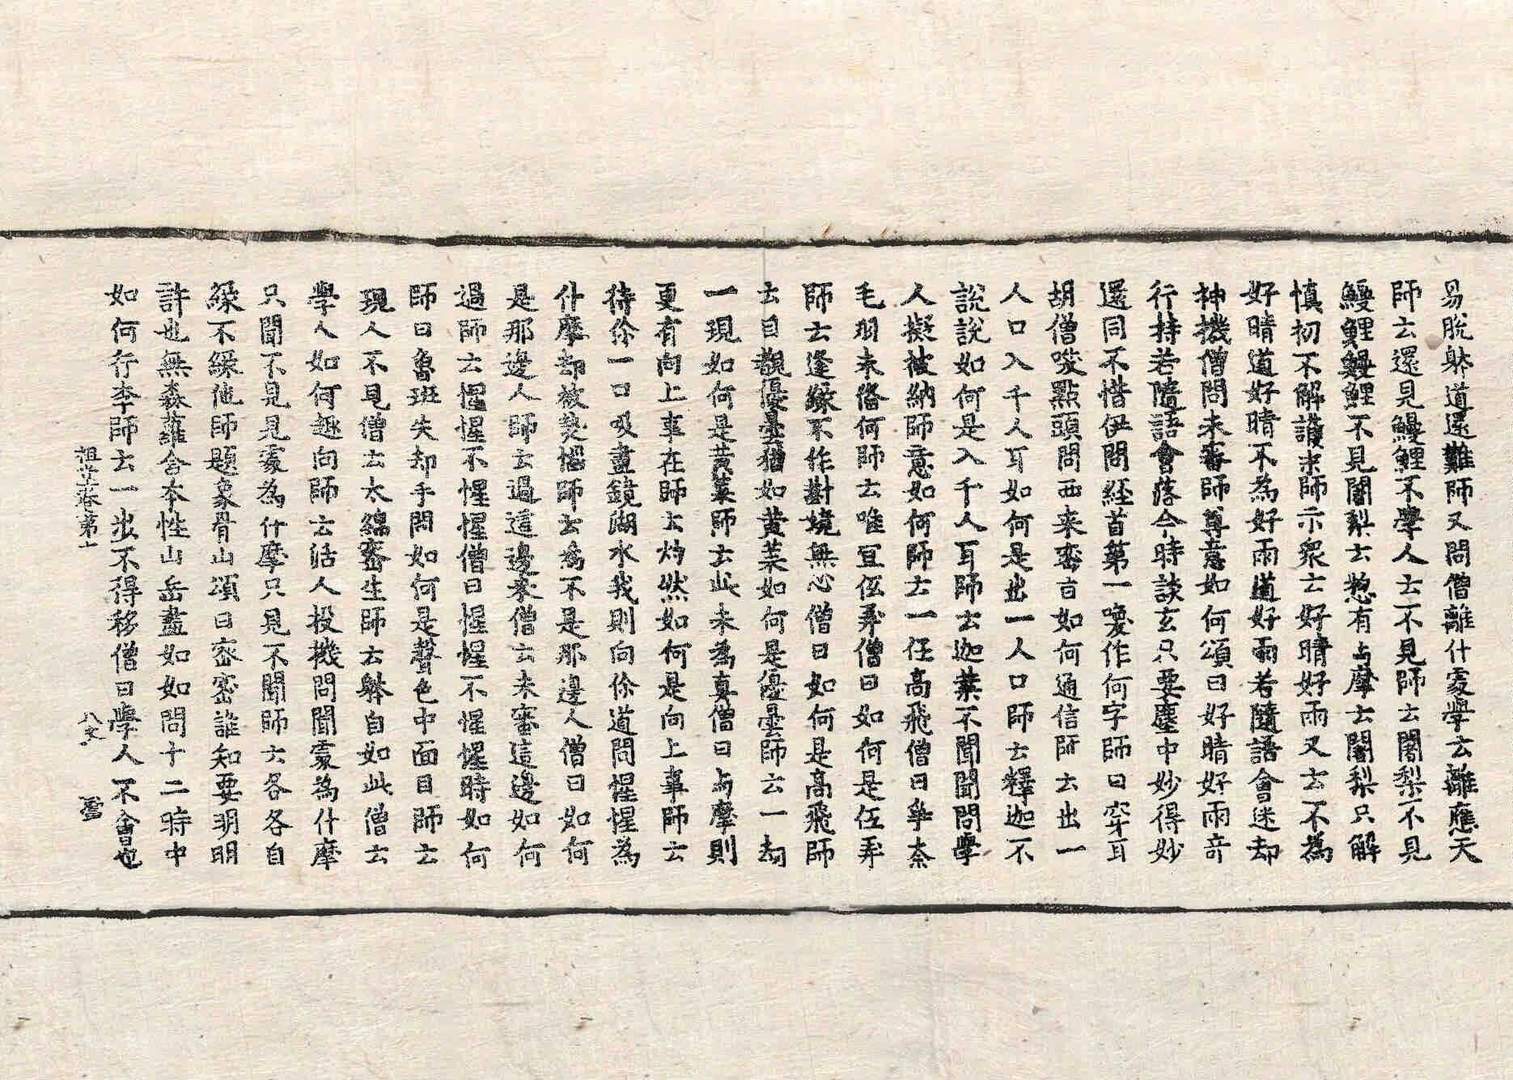 易脫躰道還難師又問僧離什䖏學云離應天
師云還見鰻鯉不學人云不見師云闍梨不見
鰻鯉鰻鯉不見闍梨云惣有与摩云闍梨只解
慎初不解護末師示衆云好晴好雨又云不為
好晴道好晴不為好雨道好雨若隨語會迷却
神機僧問未審師尊意如何頌曰好晴好雨奇
行持若隨語會落今時談玄只要塵中妙得妙
還同不惜伊問經首第一喚作何字師曰穿耳
胡僧咲點頭問西来密旨如何通信師云出一
人口入千人耳如何是出一人口師云釋迦不
說說如何是入千人耳師云迦葉不聞聞問學
人擬被納師意如何師云一任高飛僧曰爭奈
毛羽未俻何師云唯宜伍弄僧曰如何是伍弄
師云逢緣不作對境無心僧曰如何是高飛師
云目覩優曇猶如黄葉如何是優曇師云一劫
一現如何是黄葉師云此未為真僧曰与摩則
更有向上事在師云灼然如何是向上事師云
待你一口吸盡鏡湖水我則向你道問惺惺為
什摩却被熱惱師云為不是那邊人僧曰如何
是那邊人師云過這邊来僧云未審這邊如何
過師云惺惺不惺惺僧曰惺惺不惺惺時如何
師曰魯班失却手問如何是聲色中面目師云
現人不見僧云太綿密生師云躰自如此僧云
學人如何趣向師云活人投機問聞䖏為什摩
只聞不見見䖏為什摩只見不聞師云各各自
緣不緣他師題象骨山頌曰密密誰知要明明
許也無森蘿含本性山岳盡如如問十二時中
如何行李師云一步不得移僧曰學人不會乞
祖堂卷第十